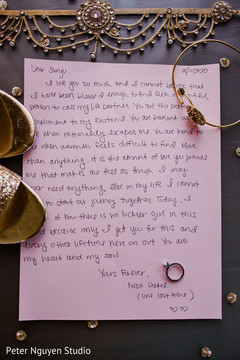 Dear Sanjay, 10/11/2020
I love you so much and I cannot believe that
I have been blessed enough to find such a beautiful
person to call my life partner. You are the best
compliment to my existence. You are patient
when rationality escapes me. You are kind
when warmth feels difficult to find. More
than anything, it is the amount of love you provide
me that makes me feel as though I may
never need anything else in my life. I cannot
to start our journey together. Today, I
of how there is no luckier girl in this
because only I get you for this and
every other lifetime here on out. You are
my heart and my soul
Yours Forever,
Nisa Patel
(one last time)
Peter Nguyen Studio